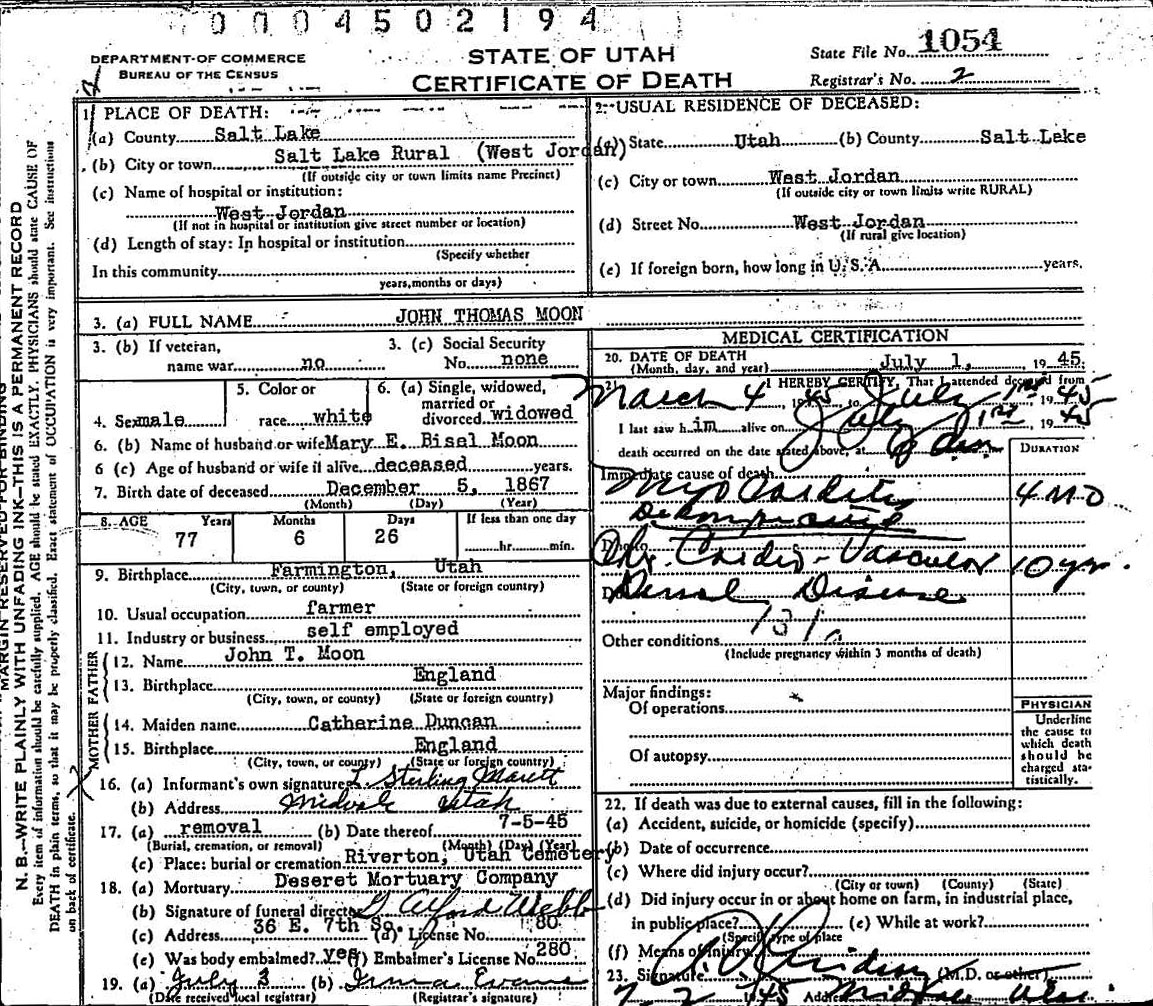 0004502194
DEPARTMENT OF COMMERCE
BUREAU OF THE CENSUS
STATE OF UTAH
CERTIFICATE OF DEATH
State File No. 1054
Registrar's No. 2
MARGIN RESERVED FOR BINDING
N. B.—WRITE PLAINLY WITH UNFADING INK—THIS IS A PERMANENT RECORD
Every item of information should be carefully supplied. AGE should be stated EXACTLY. PHYSICIANS should state CAUSE OF
DEATH in plain terms, so that it may be properly classified. Exact statement of OCCUPATION is very important. See instructions
on back of certificate.
1. PLACE OF DEATH:
(a) County Salt Lake
(b) City or town Salt Lake Rural (West Jordan)
(If outside city or town limits name Precinct)
(c) Name of hospital or institution:
West Jordan
(If not in hospital or institution give street number or location)
(d) Length of stay: In hospital or institution
(Specify whether
In this community
years, months or days)
2. USUAL RESIDENCE OF DECEASED:
(a) State Utah (b) County Salt Lake
(c) City or town West Jordan
(If outside city or town limits write RURAL)
(d) Street No. West Jordan
(If rural give location)
(e) If foreign born, how long in U. S. A. years.
3. (a) FULL NAME JOHN THOMAS MOON
3. (b) If veteran,
name war no
3. (c) Social Security
No. none
4. Sex male
5. Color or
race white
6. (a) Single, widowed,
married or
divorced widowed
6. (b) Name of husband or wife Mary E. Bisal Moon
6 (c) Age of husband or wife if alive deceased years.
7. Birth date of deceased December 5, 1867
(Month) (Day) (Year)
8. AGE Years Months Days If less than one day
77 6 26 hr. min.
9. Birthplace Farmington, Utah
(City, town, or county) (State or foreign country)
10. Usual occupation farmer
11. Industry or business self employed
FATHER
12. Name John T. Moon
13. Birthplace England
(City, town, or county) (State or foreign country)
MOTHER
14. Maiden name Catherine Duncan
15. Birthplace England
(City, town, or county) (State or foreign country)
16. (a) Informant's own signature L Sterling
(b) Address Midvale Utah
17. (a) removal (b) Date thereof 7-5-45
(Burial, cremation, or removal) (Month) (Day) (Year)
(c) Place: burial or cremation Riverton, Utah Cemetery
18. (a) Mortuary Deseret Mortuary Company
(b) Signature of funeral director Alford Webb
(c) Address 36 E. 7th So. (d) License No. 80
(e) Was body embalmed? yes (f) Embalmer's License No. 280
19. (a) July 3 (b) Irma Evans
(Date received local registrar) (Registrar's signature)
MEDICAL CERTIFICATION
20. DATE OF DEATH
(Month, day, and year) July 1, 1945.
21. I HEREBY CERTIFY, That I attended deceased from
March 4, 1945 to July 1st, 1945
I last saw him alive on July 1st, 1945
death occurred on the date stated above, at m.
DURATION
Immediate cause of death
Myocarditis 4 MO
Due to
Chr. Cardio-Vascular 10 yr.
Due to
Renal Disease
131a
Other conditions
(Include pregnancy within 3 months of death)
Major findings:
Of operations
Of autopsy
PHYSICIAN
Underline
the cause to
which death
should be
charged sta-
tistically.
22. If death was due to external causes, fill in the following:
(a) Accident, suicide, or homicide (specify)
(b) Date of occurrence
(c) Where did injury occur?
(City or town) (County) (State)
(d) Did injury occur in or about home on farm, in industrial place,
in public place? (e) While at work?
(Specify type of place
(f) Means of injury
23. Signature (M.D. or other)
7-2 1945 Address Midvale